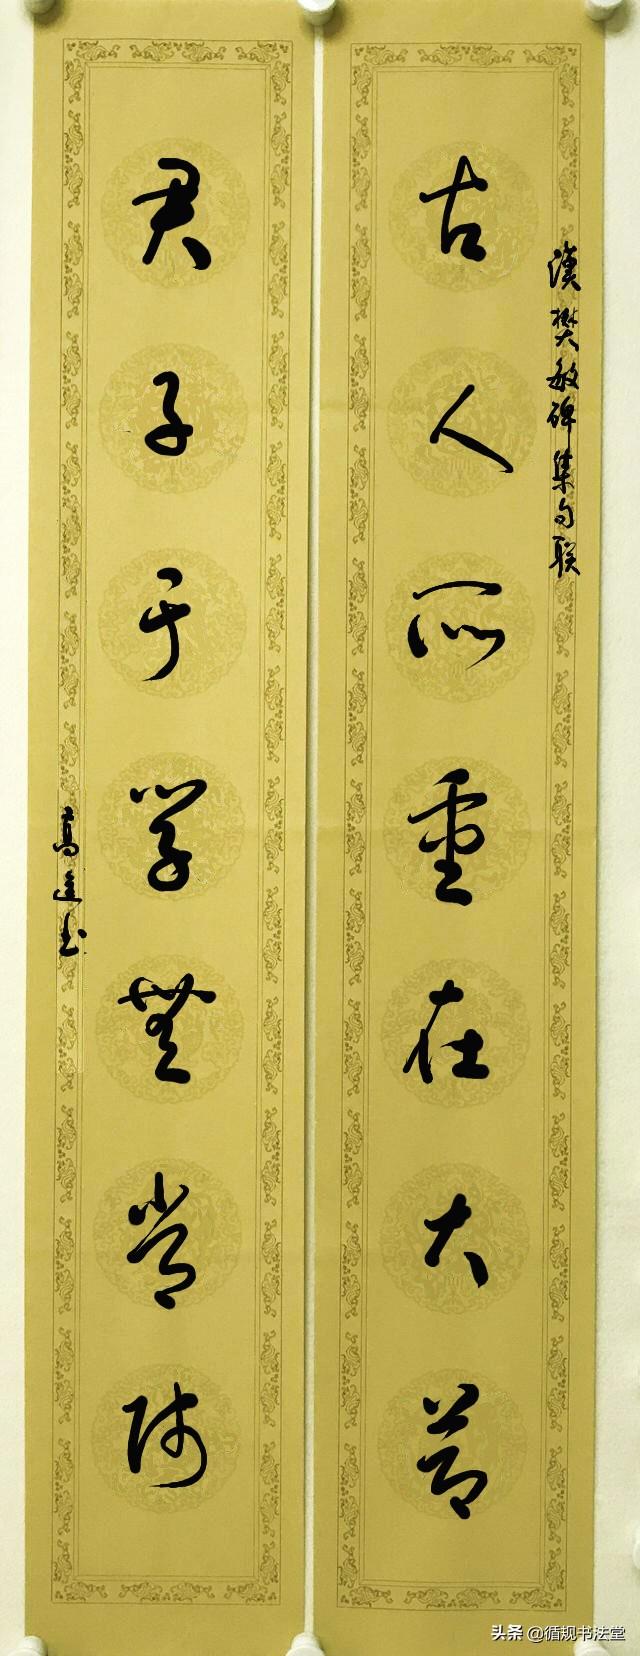 漢樊敏碑集句联
古人所重在大节
君子于学無常师
书
头条 @循规书法堂